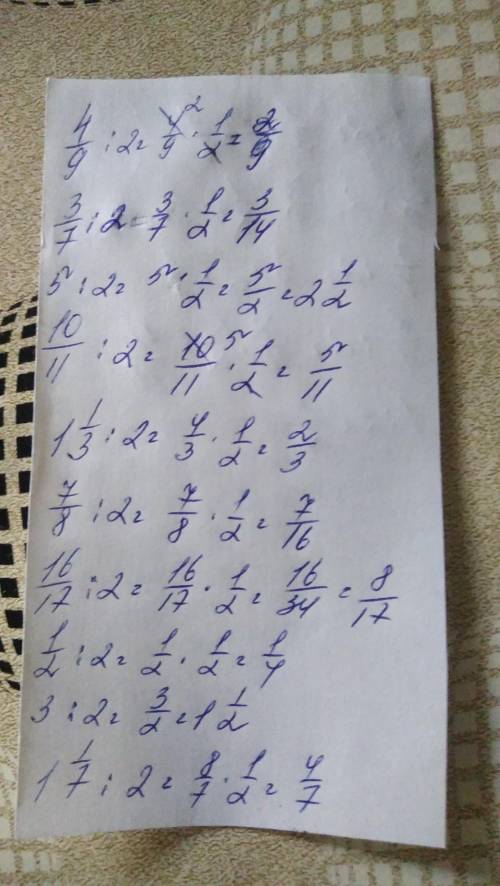 4/9 : 2 = 4/9 2 · 1/2 = 2/9
3/7 : 2 = 3/7 · 1/2 = 3/14
5 : 2 = 5 · 1/2 = 5/2 = 2 1/2
10/11 : 2 = 10/11 5 · 1/2 = 5/11
1 1/3 : 2 = 4/3 · 1/2 = 2/3
7/8 : 2 = 7/8 · 1/2 = 7/16
16/17 : 2 = 16/17 · 1/2 = 16/34 = 8/17
1/2 : 2 = 1/2 · 1/2 = 1/4
3 : 2 = 3/2 = 1 1/2
1 1/7 : 2 = 8/7 · 1/2 = 4/7